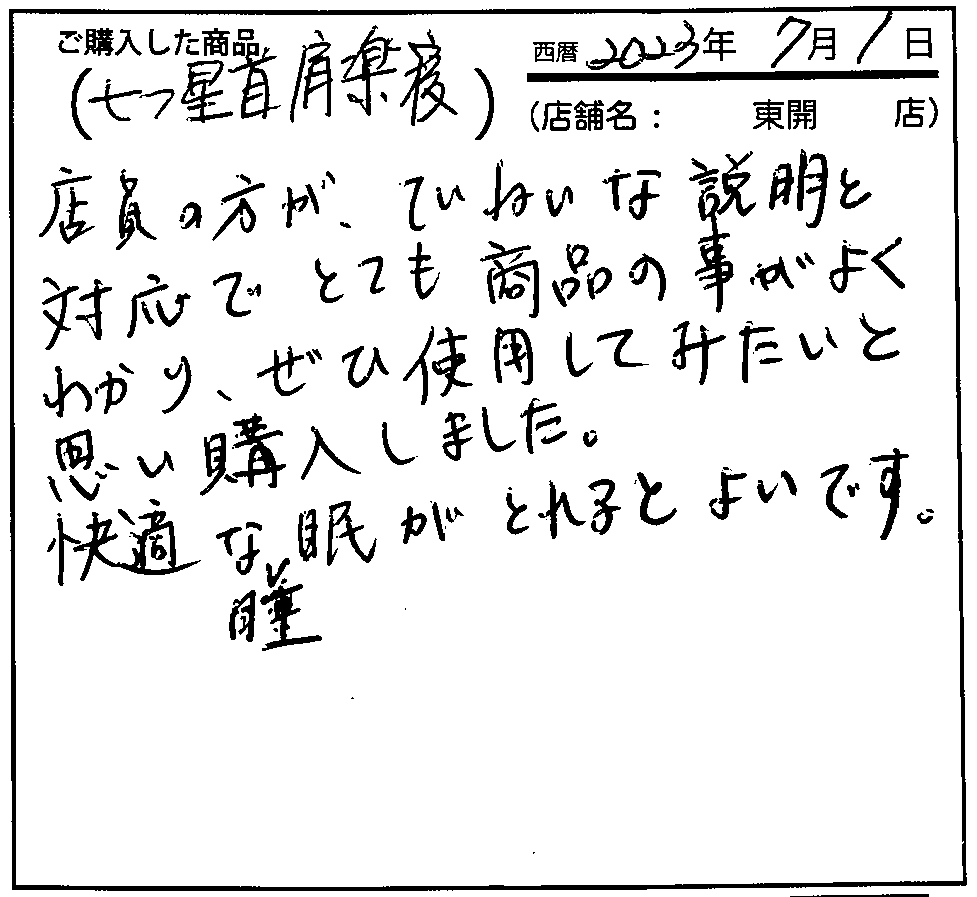 ご購入した商品
西暦 2023年 7月 1日
(七つ星首肩楽寝)
(店舗名： 東開 店)
店員の方が、ていねいな説明と
対応でとても商品の事がよく
わかり、ぜひ使用してみたいと
思い購入しました。
快適な睡眠がとれるとよいです。